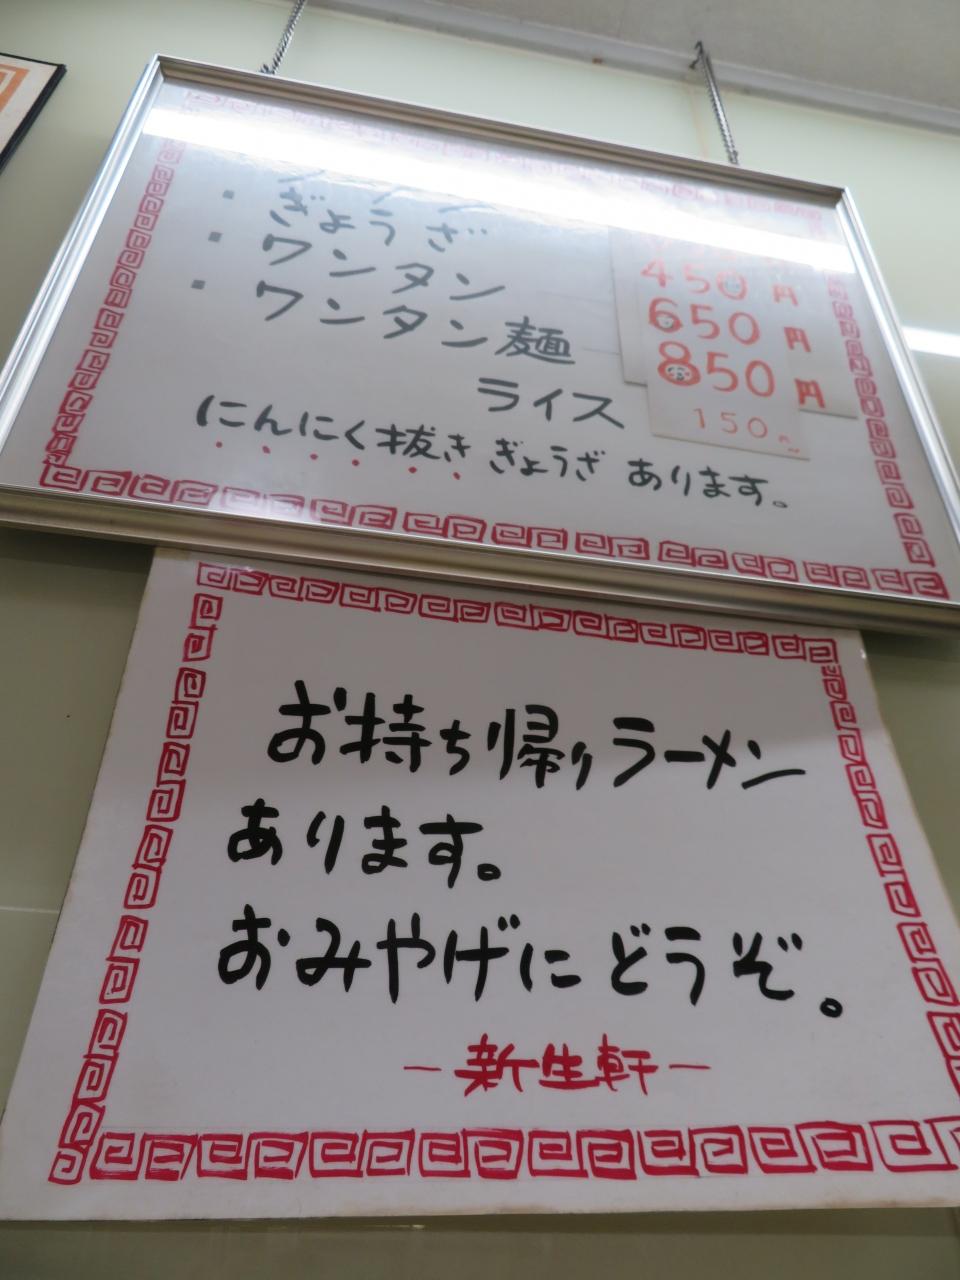 ・ぎょうざ 450円
・ワンタン 650円
・ワンタン麺 850円
ライス 150円
にんにく抜きぎょうざ あります。
お持ち帰りラーメン
あります。
おみやげにどうぞ。
－新生軒－